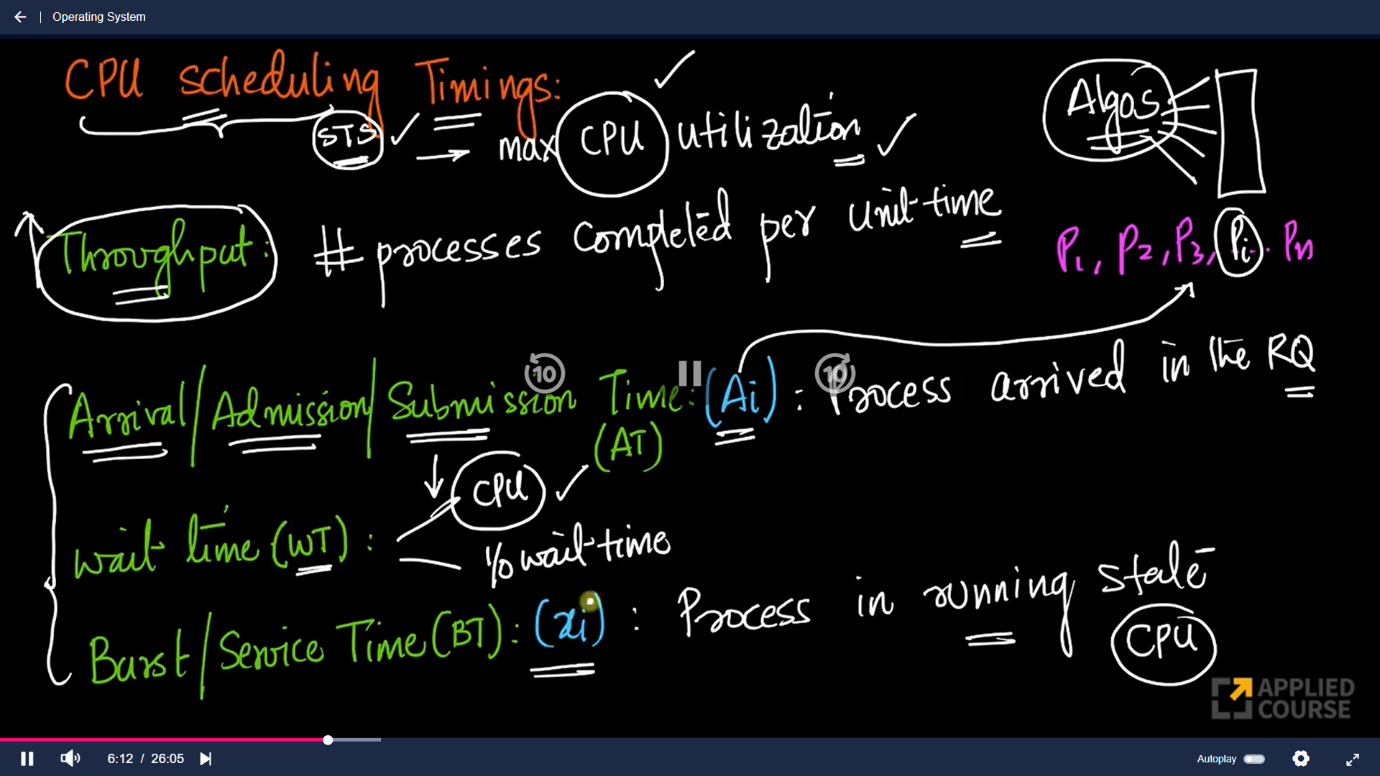 Operating System
CPU scheduling Timings:
STS → max CPU utilization
Algos
Throughput: # processes completed per unit-time
P1, P2, P3, Pi .. Pn
Arrival/Admission/Submission Time: (Ai) : Process arrived in the RQ
(AT)
10
10
CPU
wait time (WT) :
I/O wait-time
Burst/Service Time (BT): (xi) : Process in running state
CPU
APPLIED
COURSE
6:12 / 26:05
Autoplay